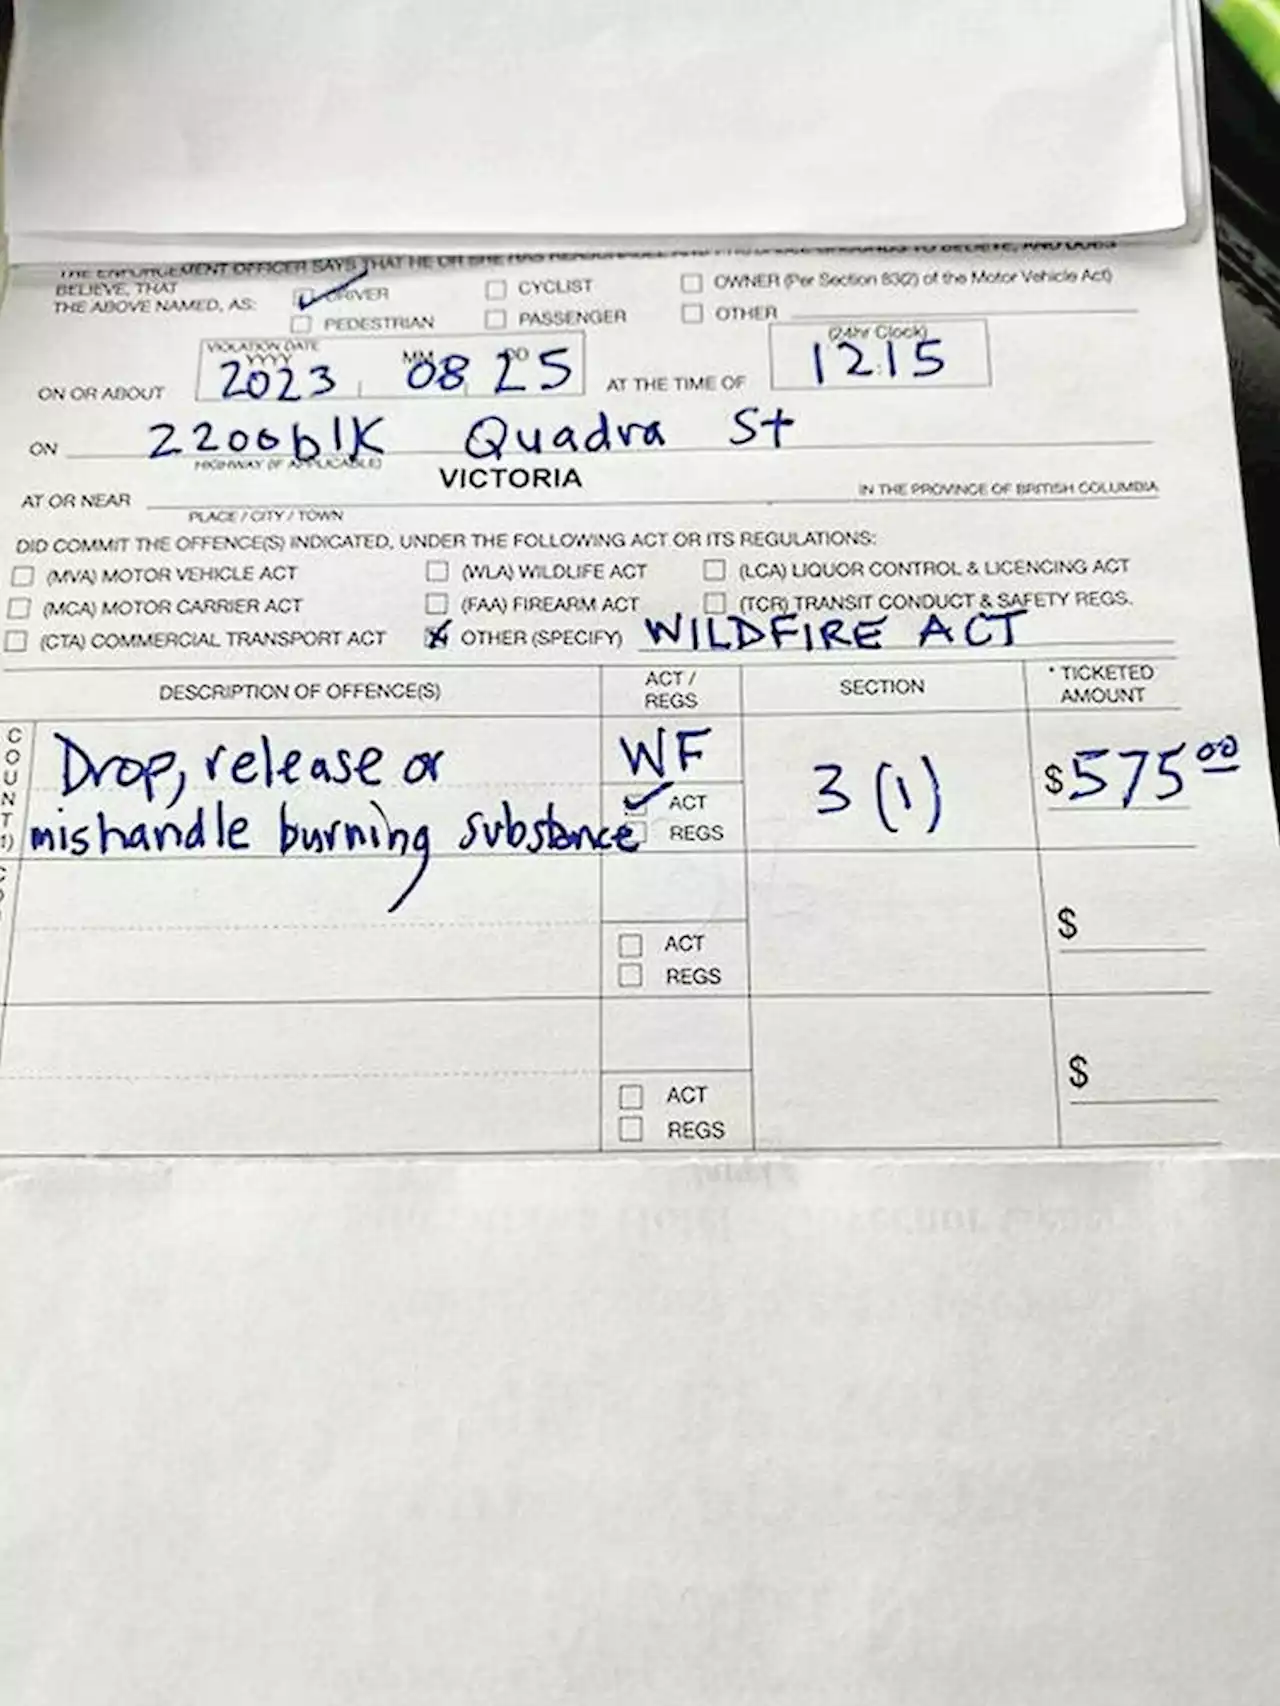 THE ENFORCEMENT OFFICER SAYS THAT HE OR SHE HAS REASONABLE AND PROBABLE GROUNDS TO BELIEVE, AND DOES
BELIEVE, THAT
THE ABOVE NAMED, AS:
DRIVER
CYCLIST
OWNER (Per Section 83(2) of the Motor Vehicle Act)
PEDESTRIAN
PASSENGER
OTHER
VIOLATION DATE
YYYY MM DD
(24hr Clock)
ON OR ABOUT 2023 08 25 AT THE TIME OF 12:15
ON 2200 blk Quadra St
HIGHWAY (IF APPLICABLE)
VICTORIA
AT OR NEAR
IN THE PROVINCE OF BRITISH COLUMBIA
PLACE / CITY / TOWN
DID COMMIT THE OFFENCE(S) INDICATED, UNDER THE FOLLOWING ACT OR ITS REGULATIONS:
(MVA) MOTOR VEHICLE ACT (WLA) WILDLIFE ACT (LCA) LIQUOR CONTROL & LICENCING ACT
(MCA) MOTOR CARRIER ACT (FAA) FIREARM ACT (TCR) TRANSIT CONDUCT & SAFETY REGS.
(CTA) COMMERCIAL TRANSPORT ACT OTHER (SPECIFY) WILDFIRE ACT
DESCRIPTION OF OFFENCE(S)
ACT /
REGS
SECTION
* TICKETED
AMOUNT
COUNT 1)
Drop, release or
mishandle burning substance
WF
ACT
REGS
3 (1)
$575.00
ACT
REGS
$
ACT
REGS
$